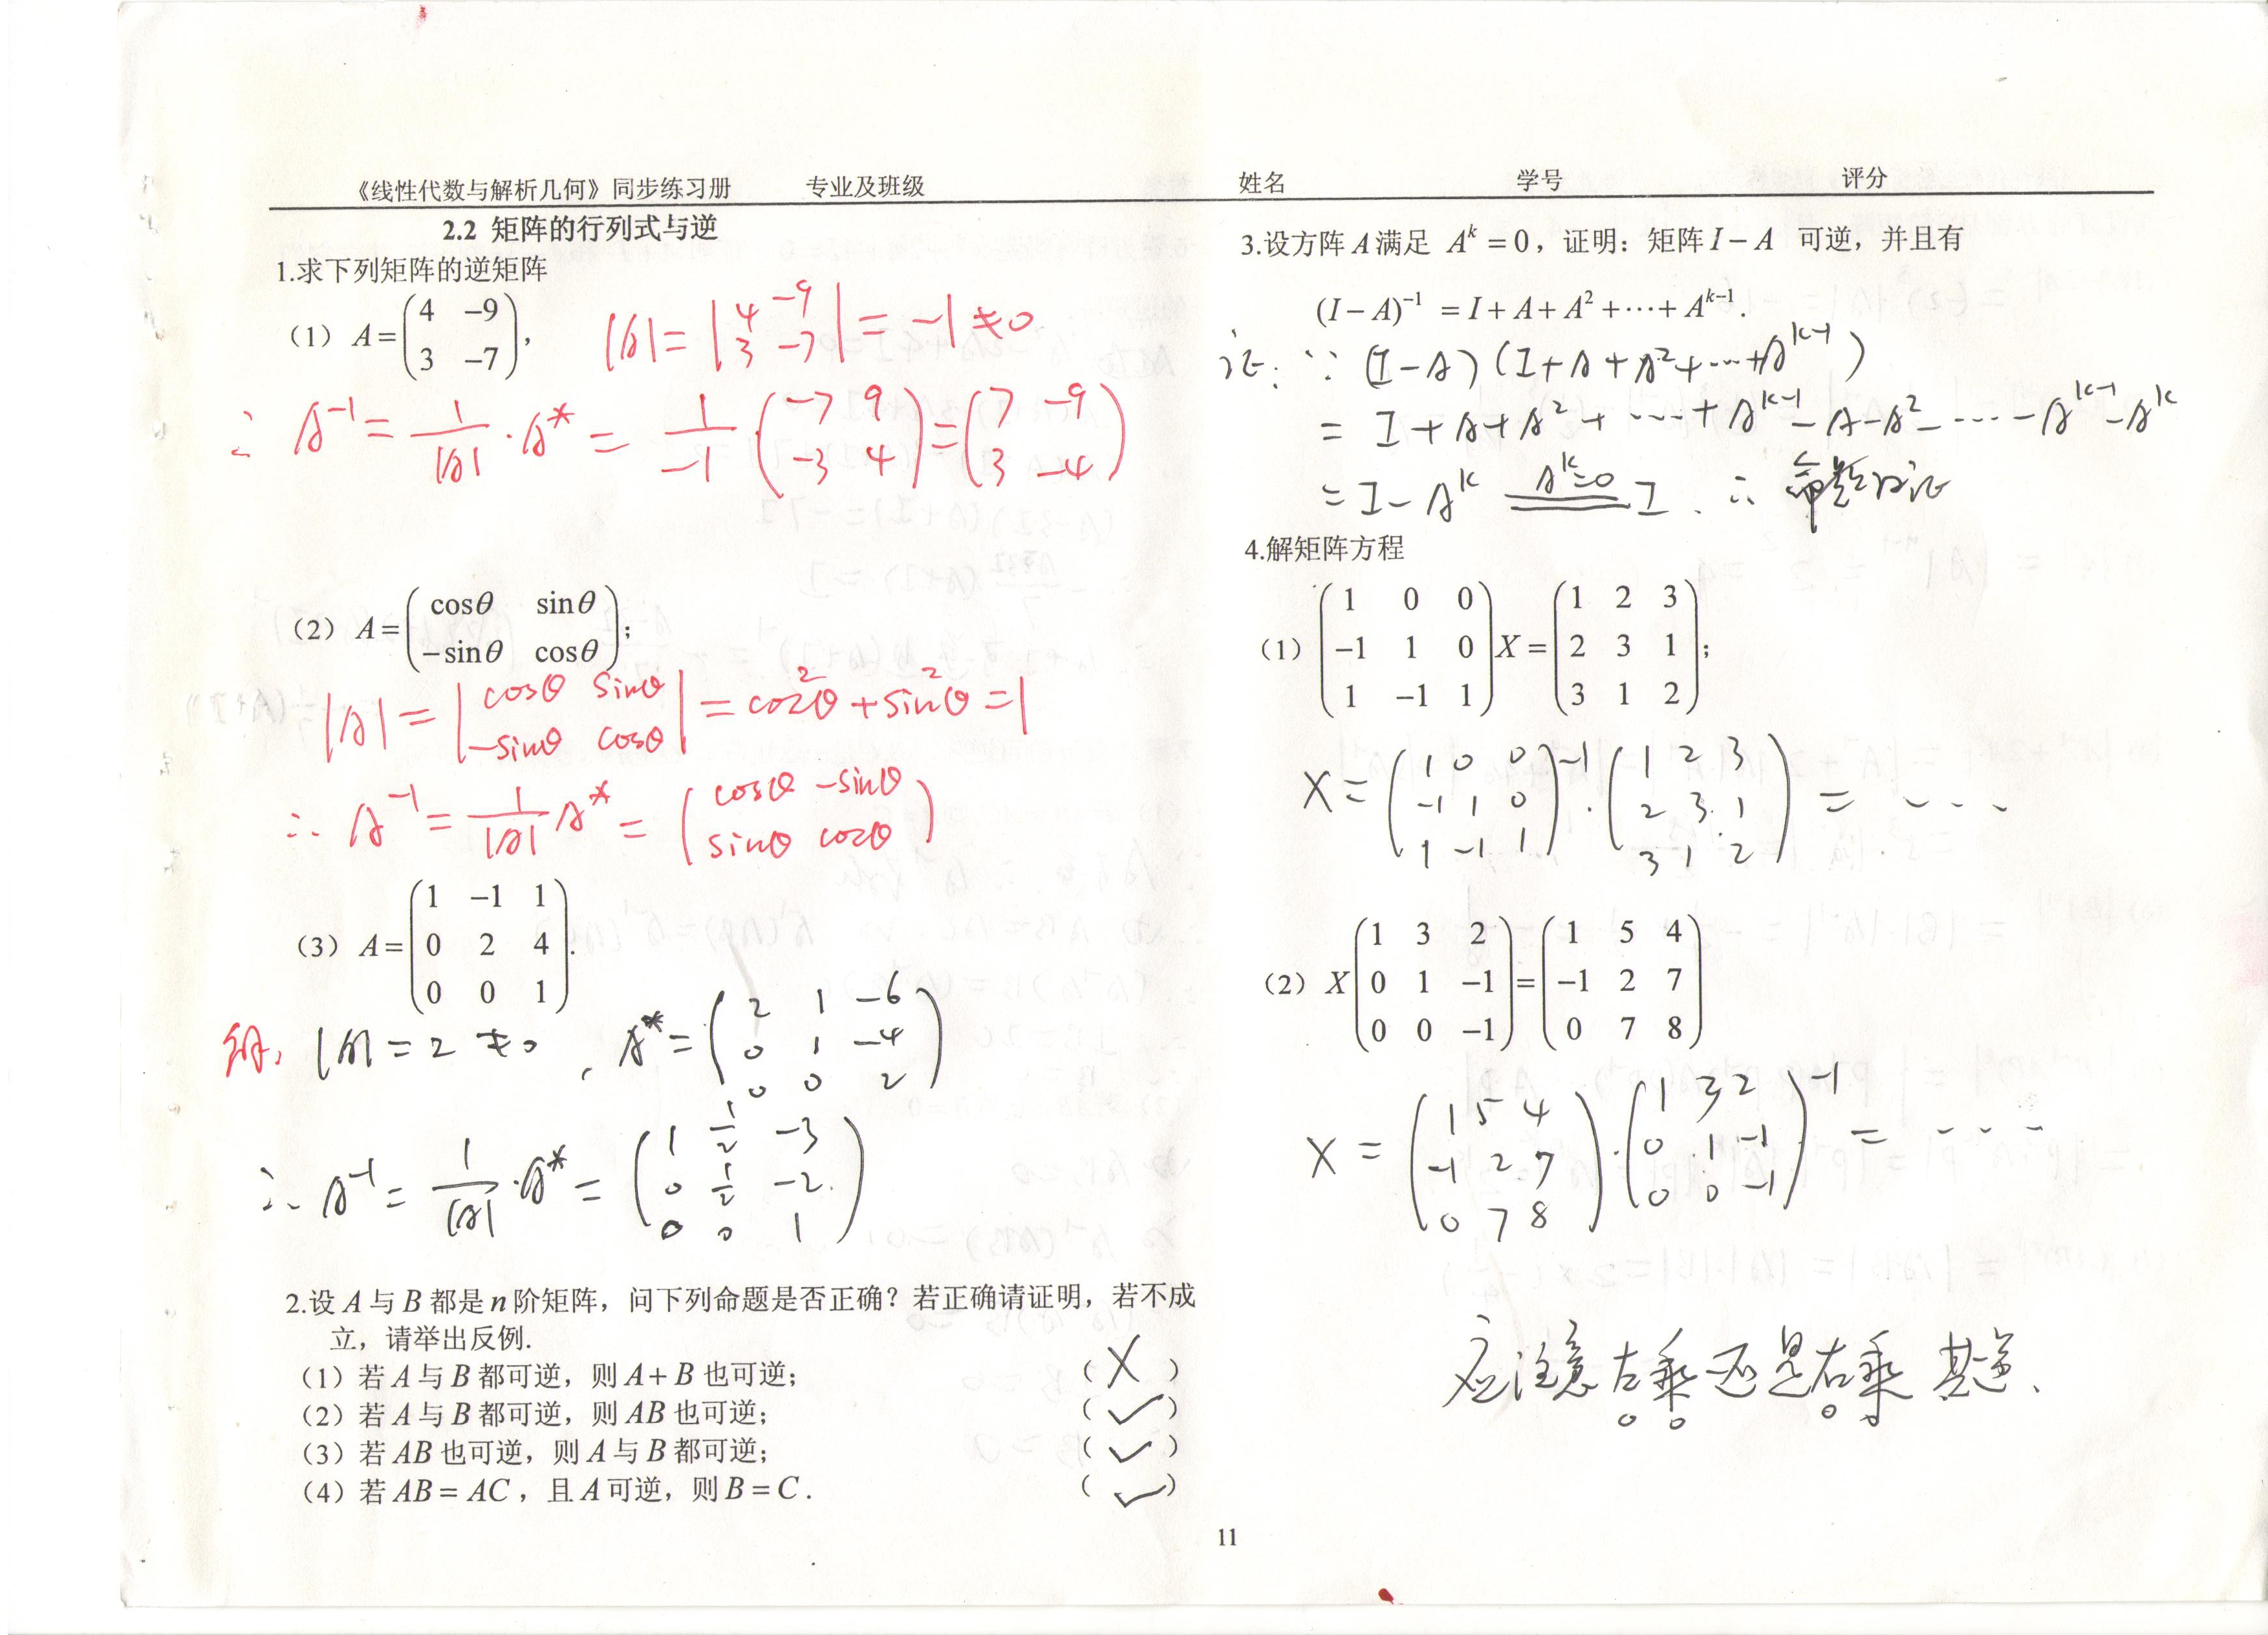 《线性代数与解析几何》同步练习册 专业及班级 姓名 学号 评分
2.2 矩阵的行列式与逆
1.求下列矩阵的逆矩阵
（1） A = ( 4 -9
3 -7 ) , |A| = | 4 -9
3 -7 | = -1 ≠ 0
∴ A⁻¹ = 1/|A| · A* = 1/-1 · ( -7 9
-3 4 ) = ( 7 -9
3 -4 )
（2） A = ( cosθ sinθ
-sinθ cosθ ) ;
|A| = | cosθ sinθ
-sinθ cosθ | = cos²θ + sin²θ = 1
∴ A⁻¹ = 1/|A| A* = ( cosθ -sinθ
sinθ cosθ )
（3） A = ( 1 -1 1
0 2 4
0 0 1 ) .
解: |A| = 2 ≠ 0 , A* = ( 2 1 -6
0 1 -4
0 0 2 )
∴ A⁻¹ = 1/|A| · A* = ( 1 1/2 -3
0 1/2 -2
0 0 1 )
2.设 A 与 B 都是 n 阶矩阵，问下列命题是否正确？若正确请证明，若不成
立，请举出反例.
（1）若 A 与 B 都可逆，则 A+B 也可逆； （ X ）
（2）若 A 与 B 都可逆，则 AB 也可逆； （ ✓ ）
（3）若 AB 也可逆，则 A 与 B 都可逆； （ ✓ ）
（4）若 AB = AC ，且 A 可逆，则 B = C . （ ✓ ）
3.设方阵 A 满足 Aᵏ = 0，证明：矩阵 I − A 可逆，并且有
(I − A)⁻¹ = I + A + A² + ⋯ + Aᵏ⁻¹.
证: ∵ (I-A)(I+A+A²+⋯+Aᵏ⁻¹)
= I+A+A²+⋯+Aᵏ⁻¹-A-A²-⋯-Aᵏ⁻¹-Aᵏ
= I-Aᵏ =(Aᵏ=0)= I. ∴ 命题得证
4.解矩阵方程
（1） ( 1 0 0
-1 1 0
1 -1 1 ) X = ( 1 2 3
2 3 1
3 1 2 ) ;
X = ( 1 0 0
-1 1 0
1 -1 1 )⁻¹ · ( 1 2 3
2 3 1
3 1 2 ) = ...
（2） X ( 1 3 2
0 1 -1
0 0 -1 ) = ( 1 5 4
-1 2 7
0 7 8 )
X = ( 1 5 4
-1 2 7
0 7 8 ) · ( 1 3 2
0 1 -1
0 0 -1 )⁻¹ = ...
应注意左乘还是右乘其逆.
11